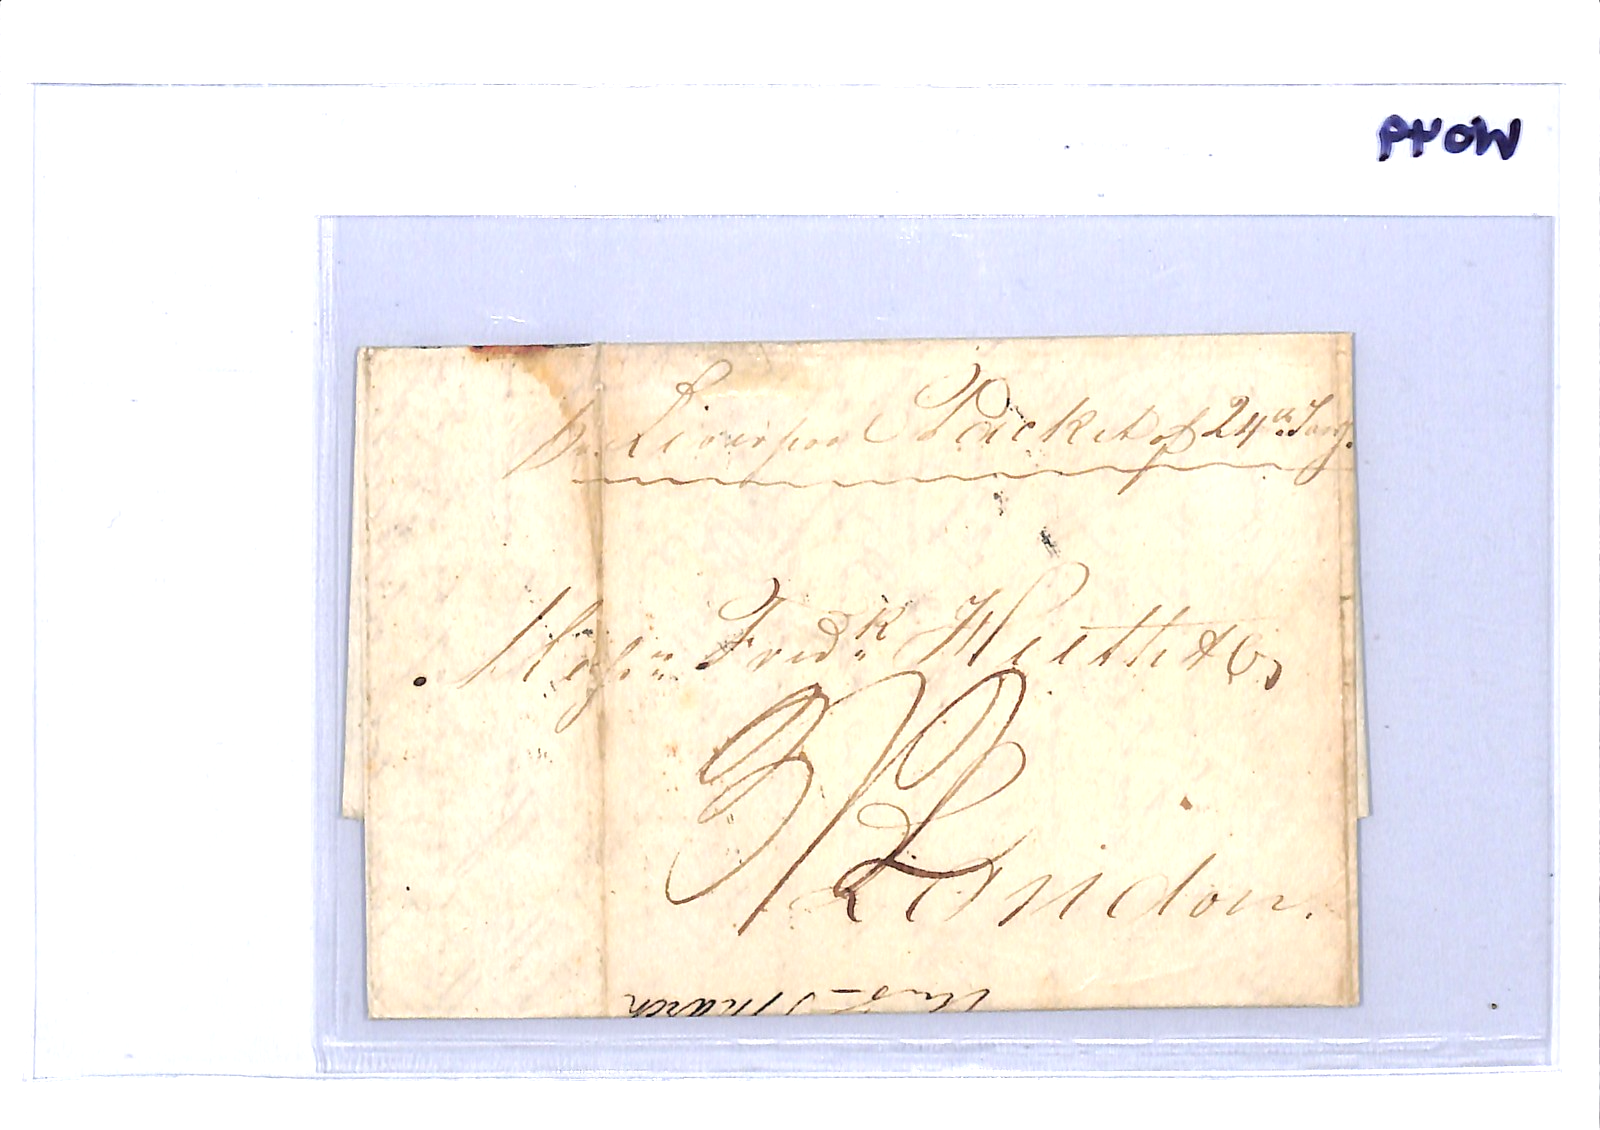 Pr. Liverpool Packet of 24th Jany.
Messrs. Fredk Huth & Co,
3/2
London.
March